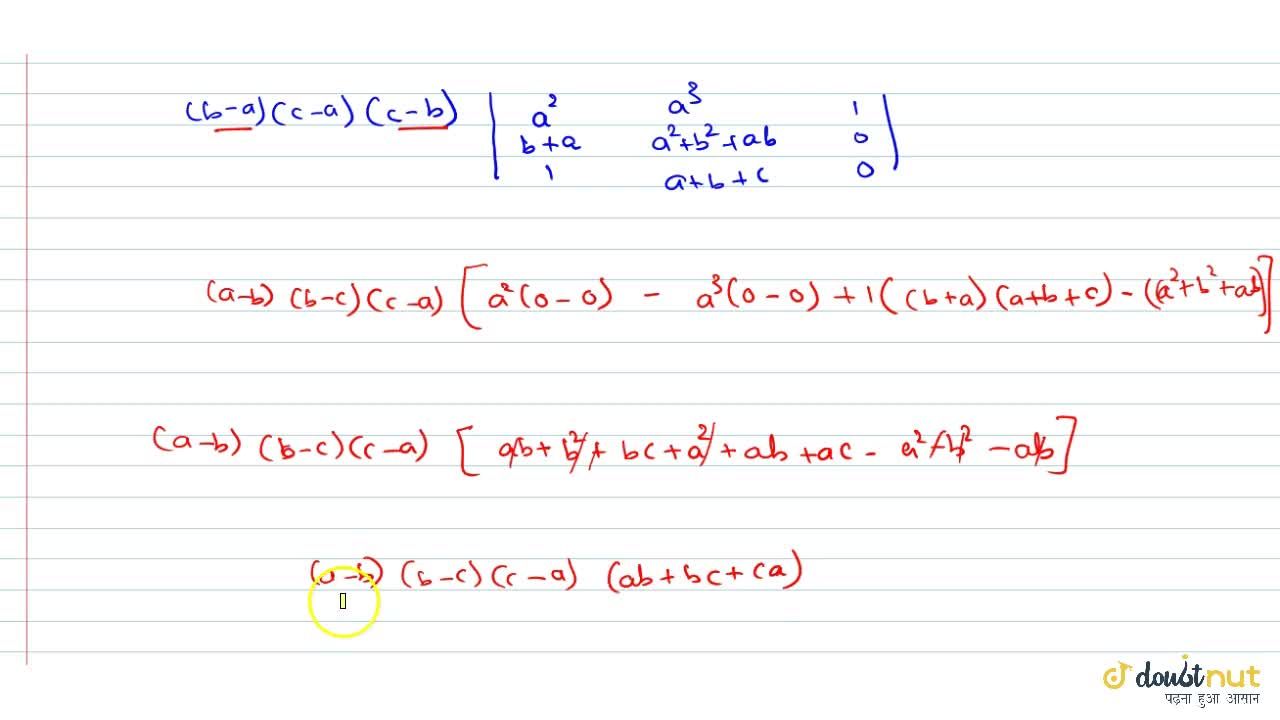 (b-a)(c-a)(c-b) | a² a³ 1
b+a a²+b²+ab 0
1 a+b+c 0 |
(a-b) (b-c)(c-a) [ a²(0-0) - a³(0-0) + 1((b+a)(a+b+c) - (a²+b²+ab)]
(a-b) (b-c)(c-a) [ ab + b² + bc + a² + ab + ac - a² - b² - ab ]
(a-b) (b-c)(c-a) (ab+bc+ca)
doubtnut
पढ़ना हुआ आसान